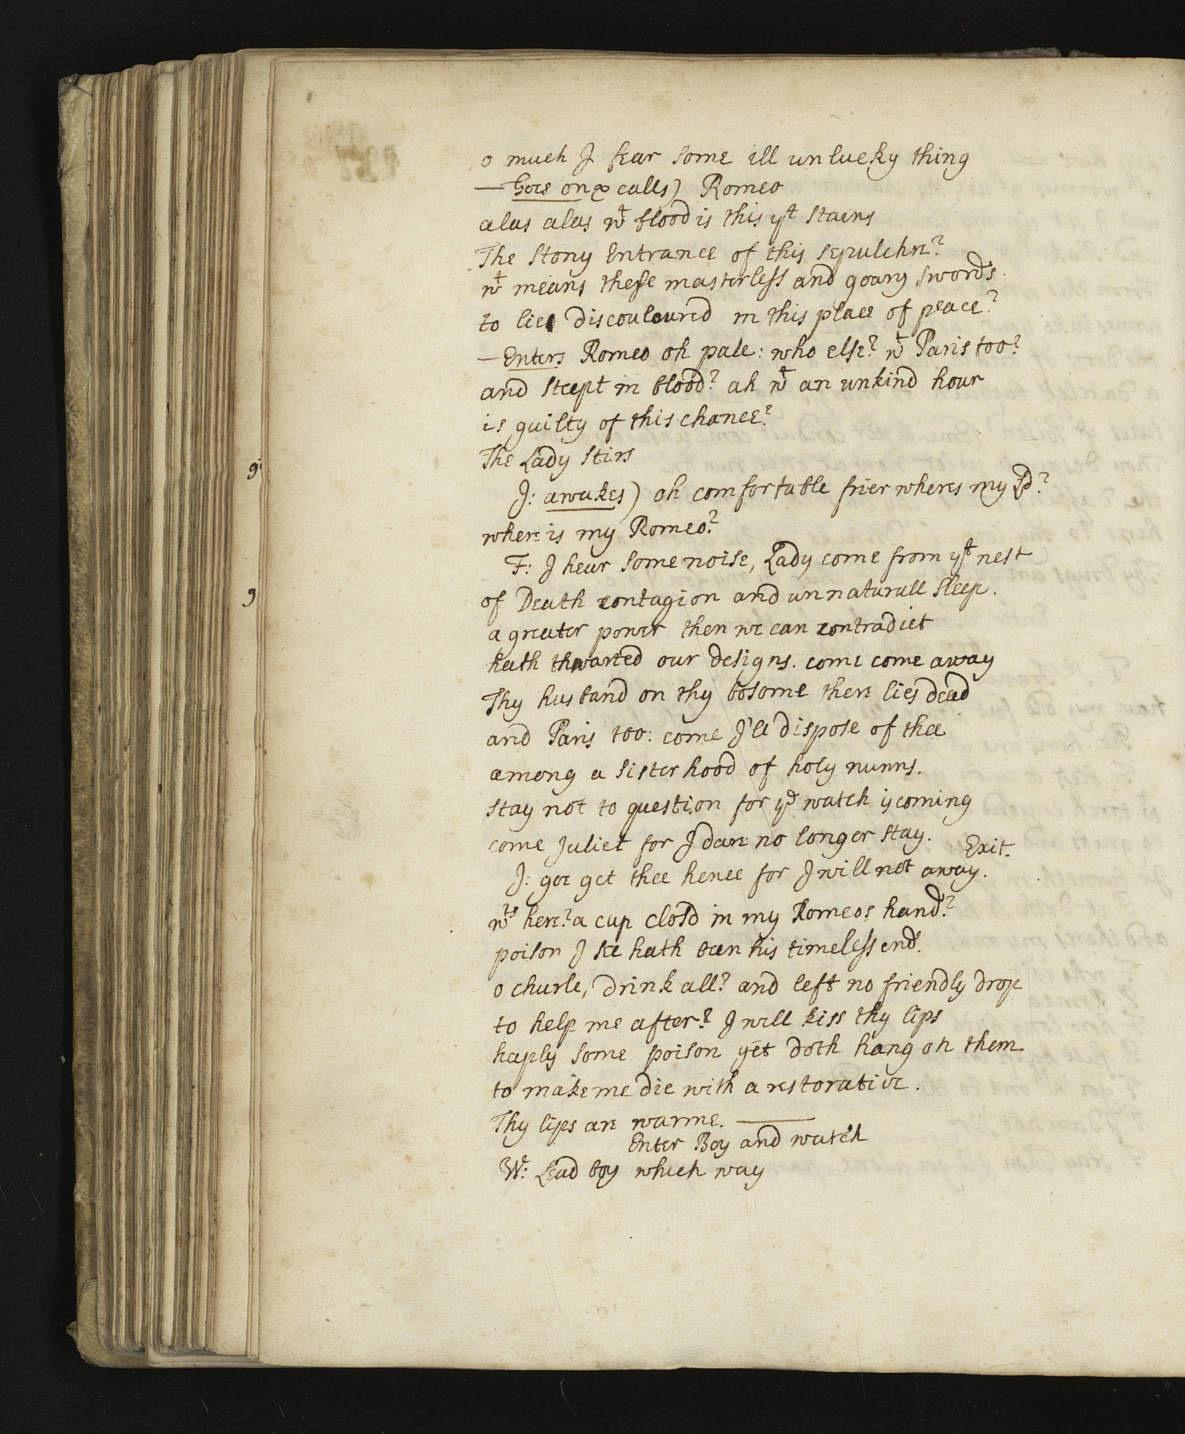 o much I fear some ill unlucky thing
— Goes on & calls) Romeo
alas alas wt blood is this yt stains
The stony Entrance of this sepulchre?
wt means these masterless and goary swords
to lie discouloured in this place of peace?
— Enters Romeo oh pale: who else? wt Paris too?
and steept in blood? ah wt an unkind hour
is guilty of this chance?
The Lady stirs
J: awakes) oh comfortable frier wheres my Ld?
where is my Romeo?
F: I hear some noise, Lady come from yt nest
of Death contagion and unnaturall sleep.
a greater power then we can contradict
hath thwarted our designs. come come away
Thy husband on thy bosome there lies dead
and Paris too: come I'le dispose of thee
among a sisterhood of holy nunns.
stay not to question for ye watch is coming
come Juliet for I dare no longer stay.
Exit.
J: goe get thee hence for I will not away.
wts here? a cup clos'd in my Romeos hand?
poison I see hath been his timeless end.
o churle, drink all? and left no friendly drop
to help me after? I will kiss thy lips
haply some poison yet doth hang on them
to make me die with a restorative.
Thy lips are warme. —
Enter Boy and watch
W: Lead boy which way